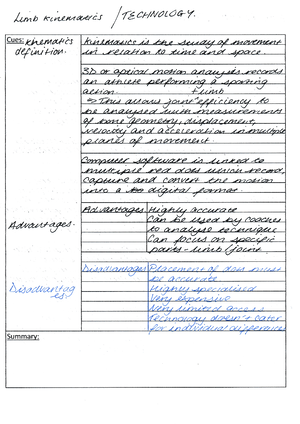 Limb Kinematics / TECHNOLOGY.
Cues: Kinematics
definition.
Kinematics is the study of movement
in relation to time and space.
3D or optical motion analysis records
an athlete performing a sporting
action. + limb
→ This allows joint efficiency to
be analysed with measurements
of bone geometry, displacement,
velocity and acceleration in multiple
planes of movement.
Computer software is linked to
multiple red dots which record,
capture and convert the motion
into a digital format.
Advantages.
Advantages Highly accurate
Can be used by coaches
to analyse technique
Can focus on specific
parts - limb/joint
Disadvantages
Disadvantages Placement of dots must
be accurate.
Highly specialised
Very expensive
Very limited access
Technology doesn't cater
for individual differences
Summary: